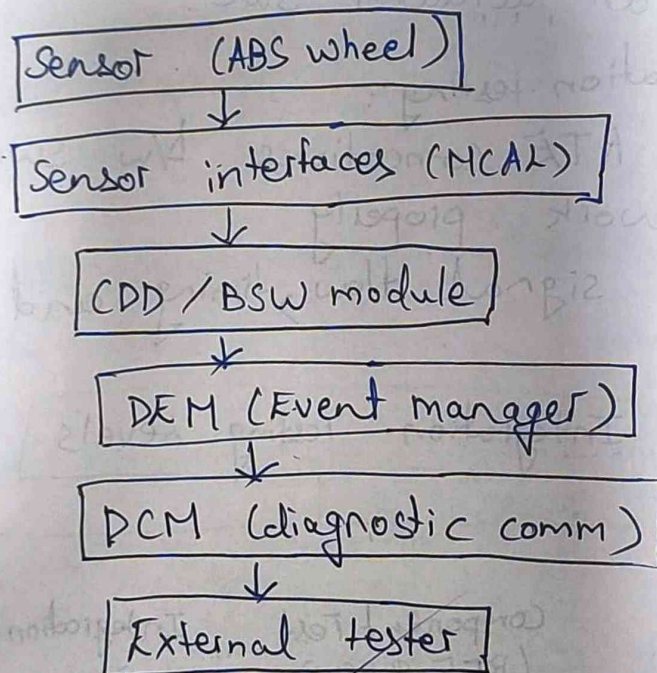 Sensor (ABS wheel)
Sensor interfaces (MCAL)
CDD / BSW module
DEM (Event manager)
DCM (diagnostic comm)
External tester